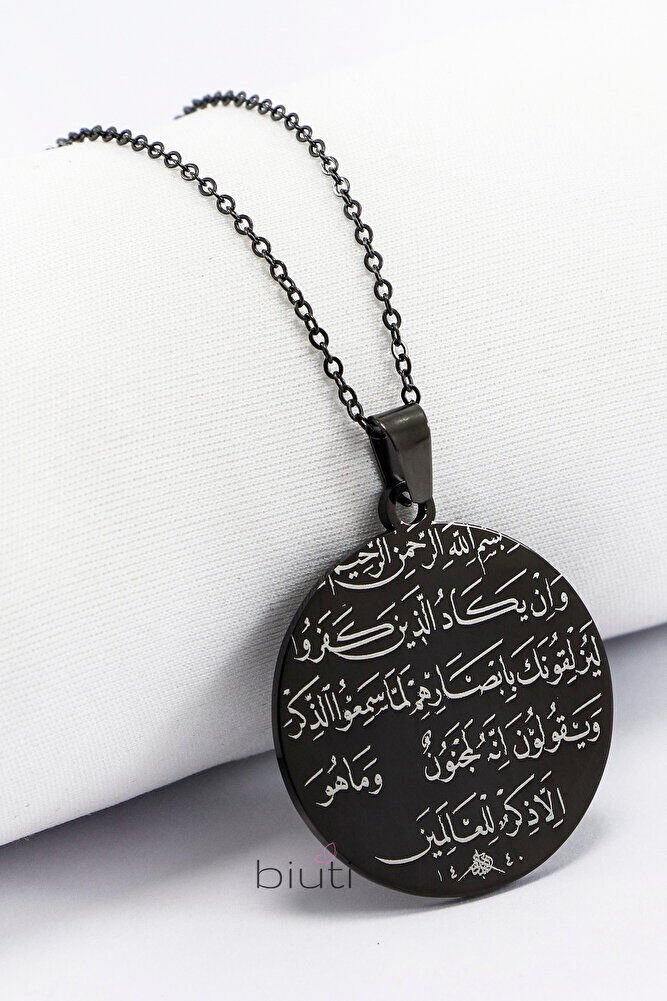 بسم الله الرحمن الرحيم
وان يكاد الذين كفروا
ليزلقونك بابصارهم لما سمعوا الذكر
ويقولون انه لمجنون وما هو
الا ذكر للعالمين
١٤ ٤٠
biuti